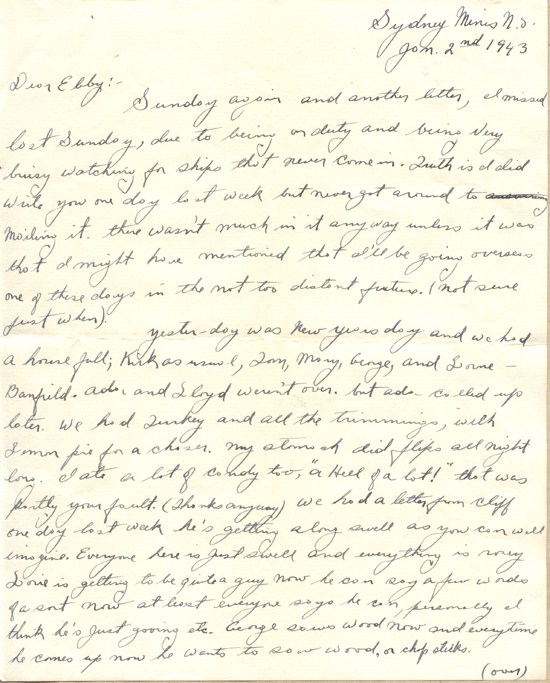 Sydney Mines N.S.
Jan. 2nd 1943
Dear Ebby:-
Sunday again and another letter, I missed
last Sunday, due to being on duty and being very
busy watching for ships that never come in. Truth is I did
write you one day last week but never got around to
mailing it. there wasn't much in it anyway unless it was
that I might have mentioned that I'll be going overseas
one of these days in the not too distant future. (not sure
just when).
yester-day was New years day and we had
a house full; Kirk as usual, Tom, Mary, George, and Lorne -
Banfield. Ada and Lloyd weren't over. but ada - called up
later. We had Turkey and all the trimmings, with
Lemon pie for a chaser. my stomach did flips all night
long. I ate a lot of candy too, "a Hell of a lot!" that was
partly your fault. (Thanks anyway) we had a letter from Cliff
one day last week he's getting along swell as you can well
imagine. Everyone here is just swell and everything is rosey
is getting to be quite a guy now he can say a few words
of a sort now at least everyone says he can, personally I
think he's just gooing etc. George saws wood now and everytime
he comes up now he wants to saw wood, or chop sticks.
(over)